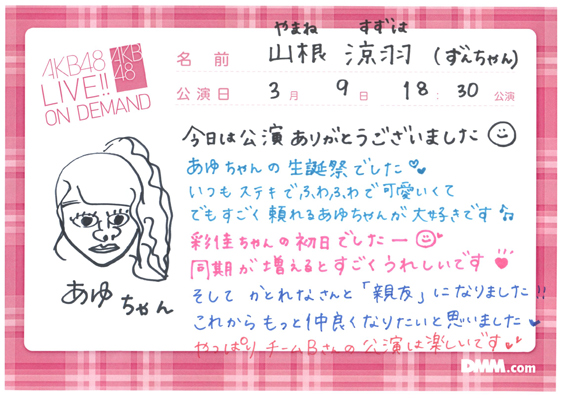 AKB48
LIVE!!
ON DEMAND
AKB
48
やまね すずは
名前 山根 涼羽 (ずんちゃん)
公演日 3月 9日 18:30 公演
今日は公演ありがとうございました
あゆちゃんの生誕祭でした
いつもステキでふわふわで可愛いくて
でもすごく頼れるあゆちゃんが大好きです♫
彩佳ちゃんの初日でしたー
同期が増えるとすごくうれしいです
そして かとれなさんと「親友」になりました!!
これからもっと仲良くなりたいと思いました
やっぱりチームBさんの公演は楽しいです
あゆちゃん
DMM.com